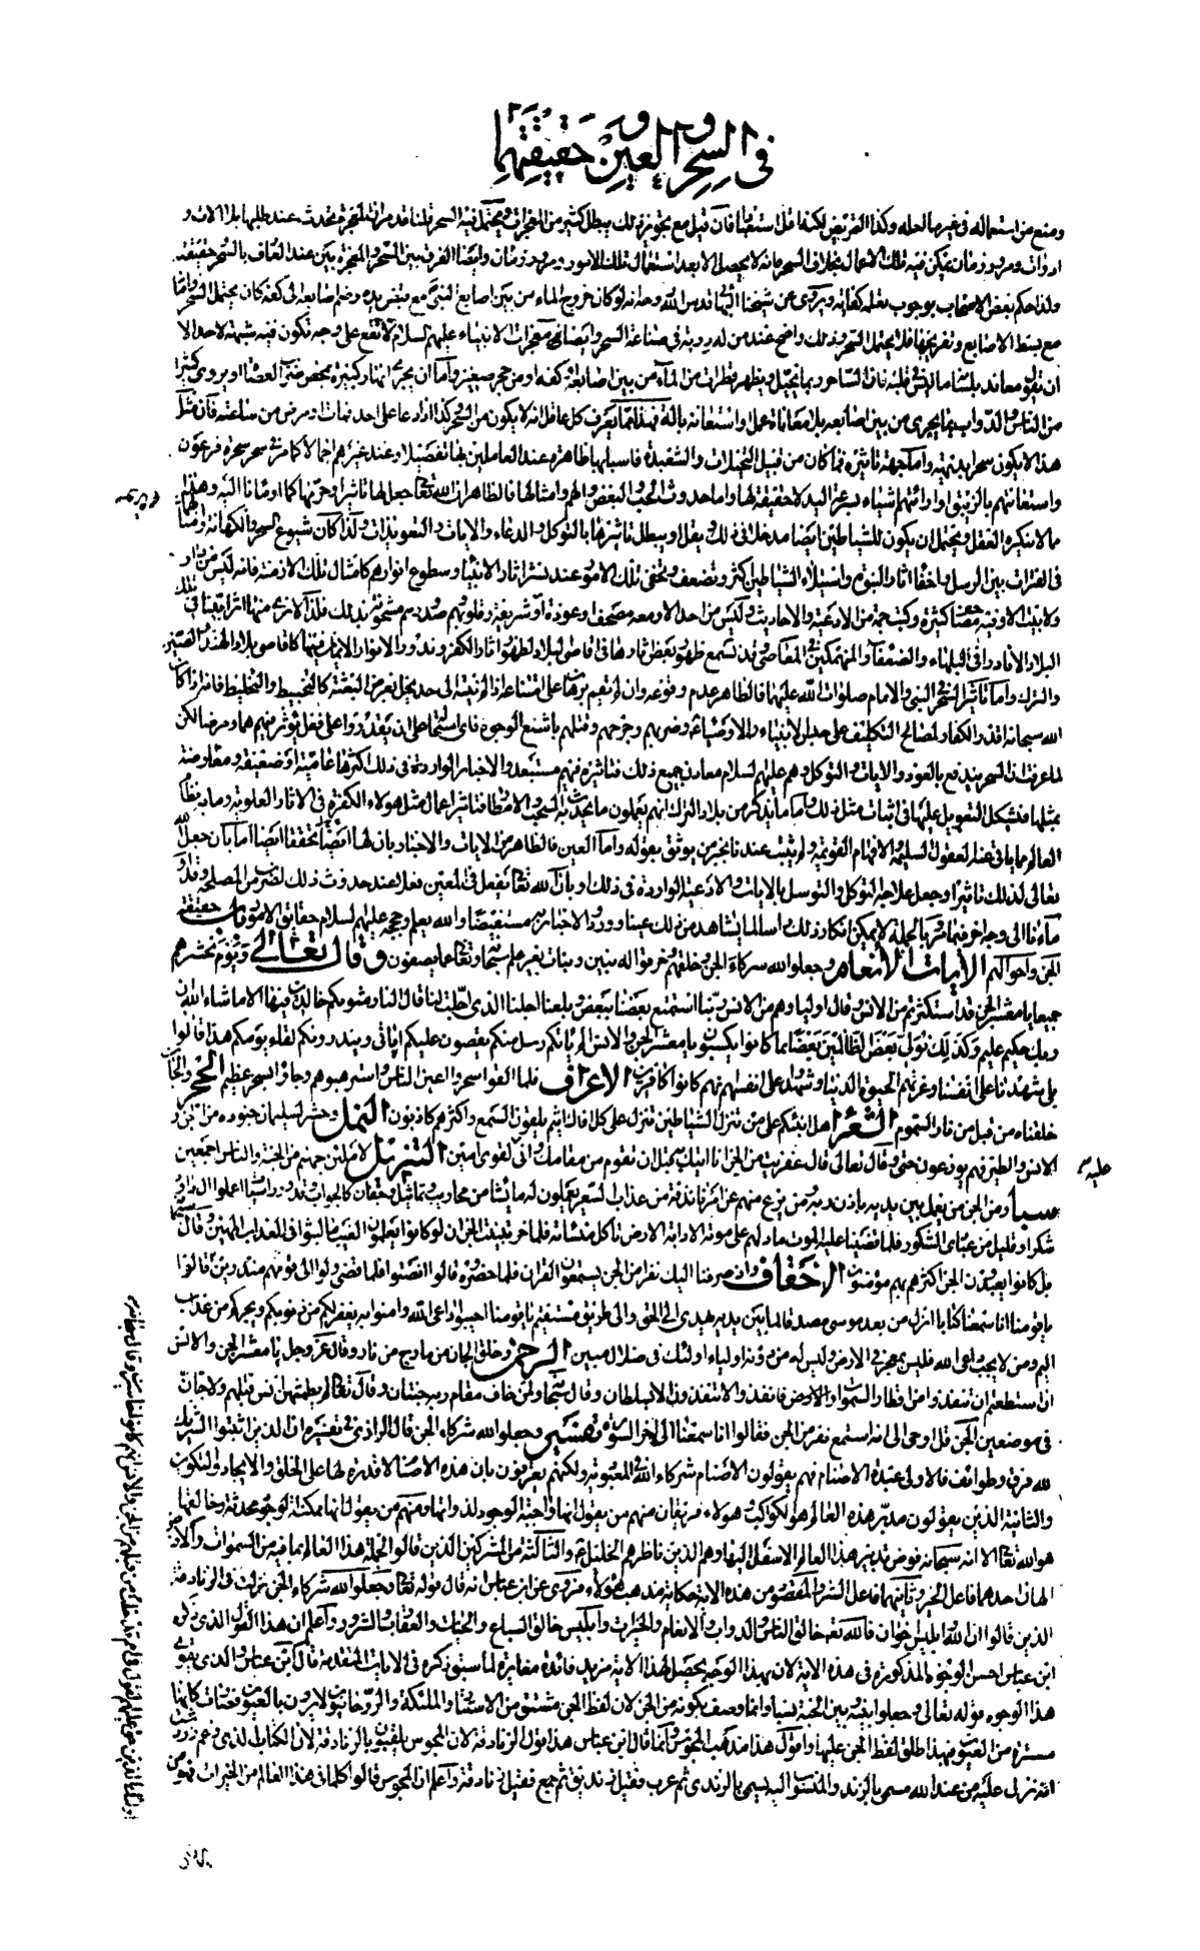 في السحر والعين وحقيقتهما
ومنع من استعماله في غيرها لعله وكذا القريض لكنه قل استغناء فان قيل مع تجويز ذلك يبطل كثير من المعجزات ويحتمل فيه السحر قلنا قد مر ان المعجزة تحدث عند طلبها بلا آلات و
ادوات ومرور زمان يمكن فيه تلك الاعمال بخلاف السحر فانه لا يحصل الا بعد استعمال تلك الامور ومرور زمان وايضا الفرق بين السحر والمعجزة بين عند العارف بالسحر وحقيقته
ولذا حكم بعض الاصحاب بوجوب تعلمه كفاية ويروى عن شيخنا البهائي قدس الله روحه انه لو كان خروج الماء من بين اصابع النبي مع قبض يده وضم اصابعه الى كفه كان يحتمل السحر واما
مع بسط الاصابع وتفريجها فلا يحتمل السحر وذلك واضح عند من له دربة في صناعة السحر وايضا معجزات الانبياء عليهم السلام لا تقع على وجه تكون فيه شبهة لاحد الا
ان يقول معاند بلسانه ما ليس في قلبه فان الساحر ربما يخيل ويظهر قطرات من الماء من بين اصابعه او كفه او من حجر صغير واما ان يجري انهار كبيرة بمحض ضرب العصا او يروي كثيرا
من الناس والدواب بما يجري من بين اصابعه بلا معاناة عمل واستعانة بآلة فهذا مما يعرف كل عاقل انه لا يكون من السحر وكذا اذا دعا على احد فمات او مرض من ساعته فان مثل
هذا لا يكون سحرا بديهة واما جهة تاثيره فما كان من قبيل التخيلات والشعبذة فاسبابها ظاهرة عند العاملين بها تفصيلا وعند غيرهم اجمالا كما مر في سحر سحرة فرعون
واستعانتهم بالزيبق او اراءتهم اشياء بسرعة اليد لا حقيقة لها واما حدوث الحب والبغض والهم وامثالها فالظاهر ان الله تعالى جعل لها تاثيرا وحرمها كما اومأنا اليه وهذا
مما لا ينكره العقل ويحتمل ان يكون للشياطين ايضا مدخل في ذلك ويقل او يبطل تاثيرها بالتوكل والدعاء والايات والتعويذات ولذا كان شيوع السحر والكهانة وامثالهما
في الفترات بين الرسل وخفاء آثار النبوة واستيلاء الشياطين اكثر وتضعف وتخفى تلك الامور عند نشر آثار الانبياء وسطوع انوارهم كامثال تلك الازمنة فانه ليس من دار
ولا بيت الا وفيه مصاحف كثيرة وكتب جمة من الادعية والاحاديث وليس من احد الا ومعه مصحف او عوذة او سورة شريفة وقلوبهم وصدورهم مشحونة بذلك فلذا لا نرى منها اثرا بينا في تلك
البلاد الا نادرا في البلهاء والضعفاء والمنهمكين في المعاصي وقد نسمع ظهور بعض آثارها في اقاصي البلاد لظهور آثار الكفر وندور انوار الايمان فيها كاقاصي بلاد الهند والصين
والترك واما تاثير السحر في النبي والامام صلوات الله عليهما فالظاهر عدم وقوعه وان لم يقم برهان على امتناعه اذا لم ينته الى حد يخل بغرض البعثة كالتخبيط والتخليط فانه اذا كان
الله سبحانه اقدر الكفار لمصالح التكليف على حبس الانبياء والاوصياء وضربهم وجرحهم وقتلهم باشنع الوجوه فاي استحالة على ان يقدروا على فعل يؤثر فيهم هما ومرضا لكن
لما عرفت ان السحر يندفع بالعوذ والايات والتوكل وهم عليهم السلام معادن جميع ذلك فتاثيره فيهم مستبعد والاخبار الواردة في ذلك اكثرها عامية او ضعيفة ومعارضة
بمثلها فيشكل التعويل عليها في اثبات مثل ذلك واما ما يذكر من بلاد الترك انهم يعملون ما يحدث به السحب والامطار فتاثير اعمال مثل هؤلاء الكفرة في الاثار العلوية وما به نظام
العالم مما يابى عنه العقول السليمة والافهام القويمة ولم يثبت عندنا بخبر من يوثق بقوله واما العين فالظاهر من الايات والاخبار ان لها ايضا تحققا ايضا اما بان جعل الله
تعالى لذلك تاثيرا وجعل علاجه التوكل والتوسل بالايات والادعية الواردة في ذلك او بان الله تعالى يفعل في المعين فعلا عند حدوث ذلك لضرب من المصلحة وقد
اومأنا الى وجه آخر فيما مر وبالجملة لا يمكن انكار ذلك راسا لما يشاهد من ذلك عينا وورود الاخبار به مستفيضا والله يعلم وحججه عليهم السلام حقايق الامور باب حقيقة
الجن واحوالهم الآيات الانعام وجعلوا لله شركاء الجن وخلقهم وخرقوا له بنين وبنات بغير علم سبحانه وتعالى عما يصفون وقال تعالى ويوم نحشرهم
جميعا يا معشر الجن قد استكثرتم من الانس وقال اولياؤهم من الانس ربنا استمتع بعضنا ببعض وبلغنا اجلنا الذي اجلت لنا قال النار مثويكم خالدين فيها الا ما شاء الله ان
ربك حكيم عليم وكذلك نولي بعض الظالمين بعضا بما كانوا يكسبون يا معشر الجن والانس الم يأتكم رسل منكم يقصون عليكم آياتي وينذرونكم لقاء يومكم هذا قالوا
بلى شهدنا على انفسنا وغرتهم الحيوة الدنيا وشهدوا على انفسهم انهم كانوا كافرين الاعراف فلما القوا سحروا اعين الناس واسترهبوهم وجاؤا بسحر عظيم الحجر والجان
خلقناه من قبل من نار السموم الشعراء هل انبئكم على من تنزل الشياطين تنزل على كل افاك اثيم يلقون السمع واكثرهم كاذبون النمل وحشر لسليمان جنوده من الجن و
الانس والطير فهم يوزعون حتى وقال تعالى قال عفريت من الجن انا آتيك به قبل ان تقوم من مقامك واني عليه لقوي امين التنزيل لاملئن جهنم من الجنة والناس اجمعين
سبا ومن الجن من يعمل بين يديه باذن ربه ومن يزغ منهم عن امرنا نذقه من عذاب السعير يعملون له ما يشاء من محاريب وتماثيل وجفان كالجواب وقدور راسيات اعملوا آل داود
شكرا وقليل من عبادي الشكور فلما قضينا عليه الموت ما دلهم على موته الا دابة الارض تاكل منساته فلما خر تبينت الجن ان لو كانوا يعلمون الغيب ما لبثوا في العذاب المهين وقال سبحانه
بل كانوا يعبدون الجن اكثرهم بهم مؤمنون الاحقاف واذ صرفنا اليك نفرا من الجن يستمعون القرآن فلما حضروه قالوا انصتوا فلما قضي ولوا الى قومهم منذرين قالوا
يا قومنا انا سمعنا كتابا انزل من بعد موسى مصدقا لما بين يديه يهدي الى الحق والى طريق مستقيم يا قومنا اجيبوا داعي الله وآمنوا به يغفر لكم من ذنوبكم ويجركم من عذاب
اليم ومن لا يجب داعي الله فليس بمعجز في الارض وليس له من دونه اولياء اولئك في ضلال مبين الرحمن وخلق الجان من مارج من نار وقال عز وجل يا معشر الجن والانس
ان استطعتم ان تنفذوا من اقطار السموات والارض فانفذوا لا تنفذون الا بسلطان وقال سبحانه ولمن خاف مقام ربه جنتان وقال تعالى لم يطمثهن انس قبلهم ولا جان
في موضعين الجن قل اوحي الي انه استمع نفر من الجن فقالوا انا سمعنا الى آخر السورة تفسير وجعلوا لله شركاء الجن قال الرازي في تفسيره ان الذين اثبتوا الشريك
لله فرق وطوائف فالاولى عبدة الاصنام فهم يقولون الاصنام شركاء لله في المعبودية ولكنهم يعترفون بان هذه الاصنام لا قدرة لها على الخلق والايجاد والتكوين
والثانية الذين يقولون مدبر هذه العالم هو الكواكب وهؤلاء فريقان منهم من يقول انها واجبة الوجود لذواتها ومنهم من يقول انها ممكنة الوجود محدثة وخالقها
هو الله تعالى الا انه سبحانه فوض تدبير هذا العالم الاسفل اليها وهم الذين ناظرهم الخليل والثالثة من المشركين الذين قالوا لجملة هذا العالم بما فيه من السموات والارض
الهان احدهما فاعل الخير وثانيهما فاعل الشر والمقصود من هذه الاية حكاية مذهب هؤلاء فروي عن ابن عباس انه قال قوله تعالى وجعلوا لله شركاء الجن نزلت في الزنادقة
الذين قالوا ان الله وابليس اخوان فالله تعالى خالق الناس والدواب والانعام والخيرات وابليس خالق السباع والحيات والعقارب والشرور واعلم ان هذا القول الذي ذكره
ابن عباس احسن الوجوه المذكورة في هذه الاية لان بهذا الوجه يحصل لهذا الاية مزيد فائدة مغايرة لما سبق ذكره في الايات المتقدمة قال ابن عباس والذي يقوي
هذا الوجه قوله تعالى وجعلوا بينه وبين الجنة نسبا وانما وصف بكونه من الجن لان لفظ الجن مشتق من الاستتار والملئكة والروحانيون لا يرون بالعيون فصارت كانها
مستترة من العيون فبهذا اطلق لفظ الجن عليها واقول هذا مذهب المجوس وانما قال ابن عباس هذا قول الزنادقة لان المجوس يلقبون بالزنادقة لان الكتاب الذي زعم زردشت
انه نزل عليه من عند الله مسمى بالزند والمنسوب اليه يسمى بالزندي ثم عرب فقيل زنديق ثم جمع فقيل زنادقة واعلم ان المجوس قالوا كلما في هذا العالم من الخيرات فهو من
عليه
اولئك الذين حق عليهم القول في امم قد خلت من قبلهم من الجن والانس انهم كانوا خاسرين وقال سبحانه